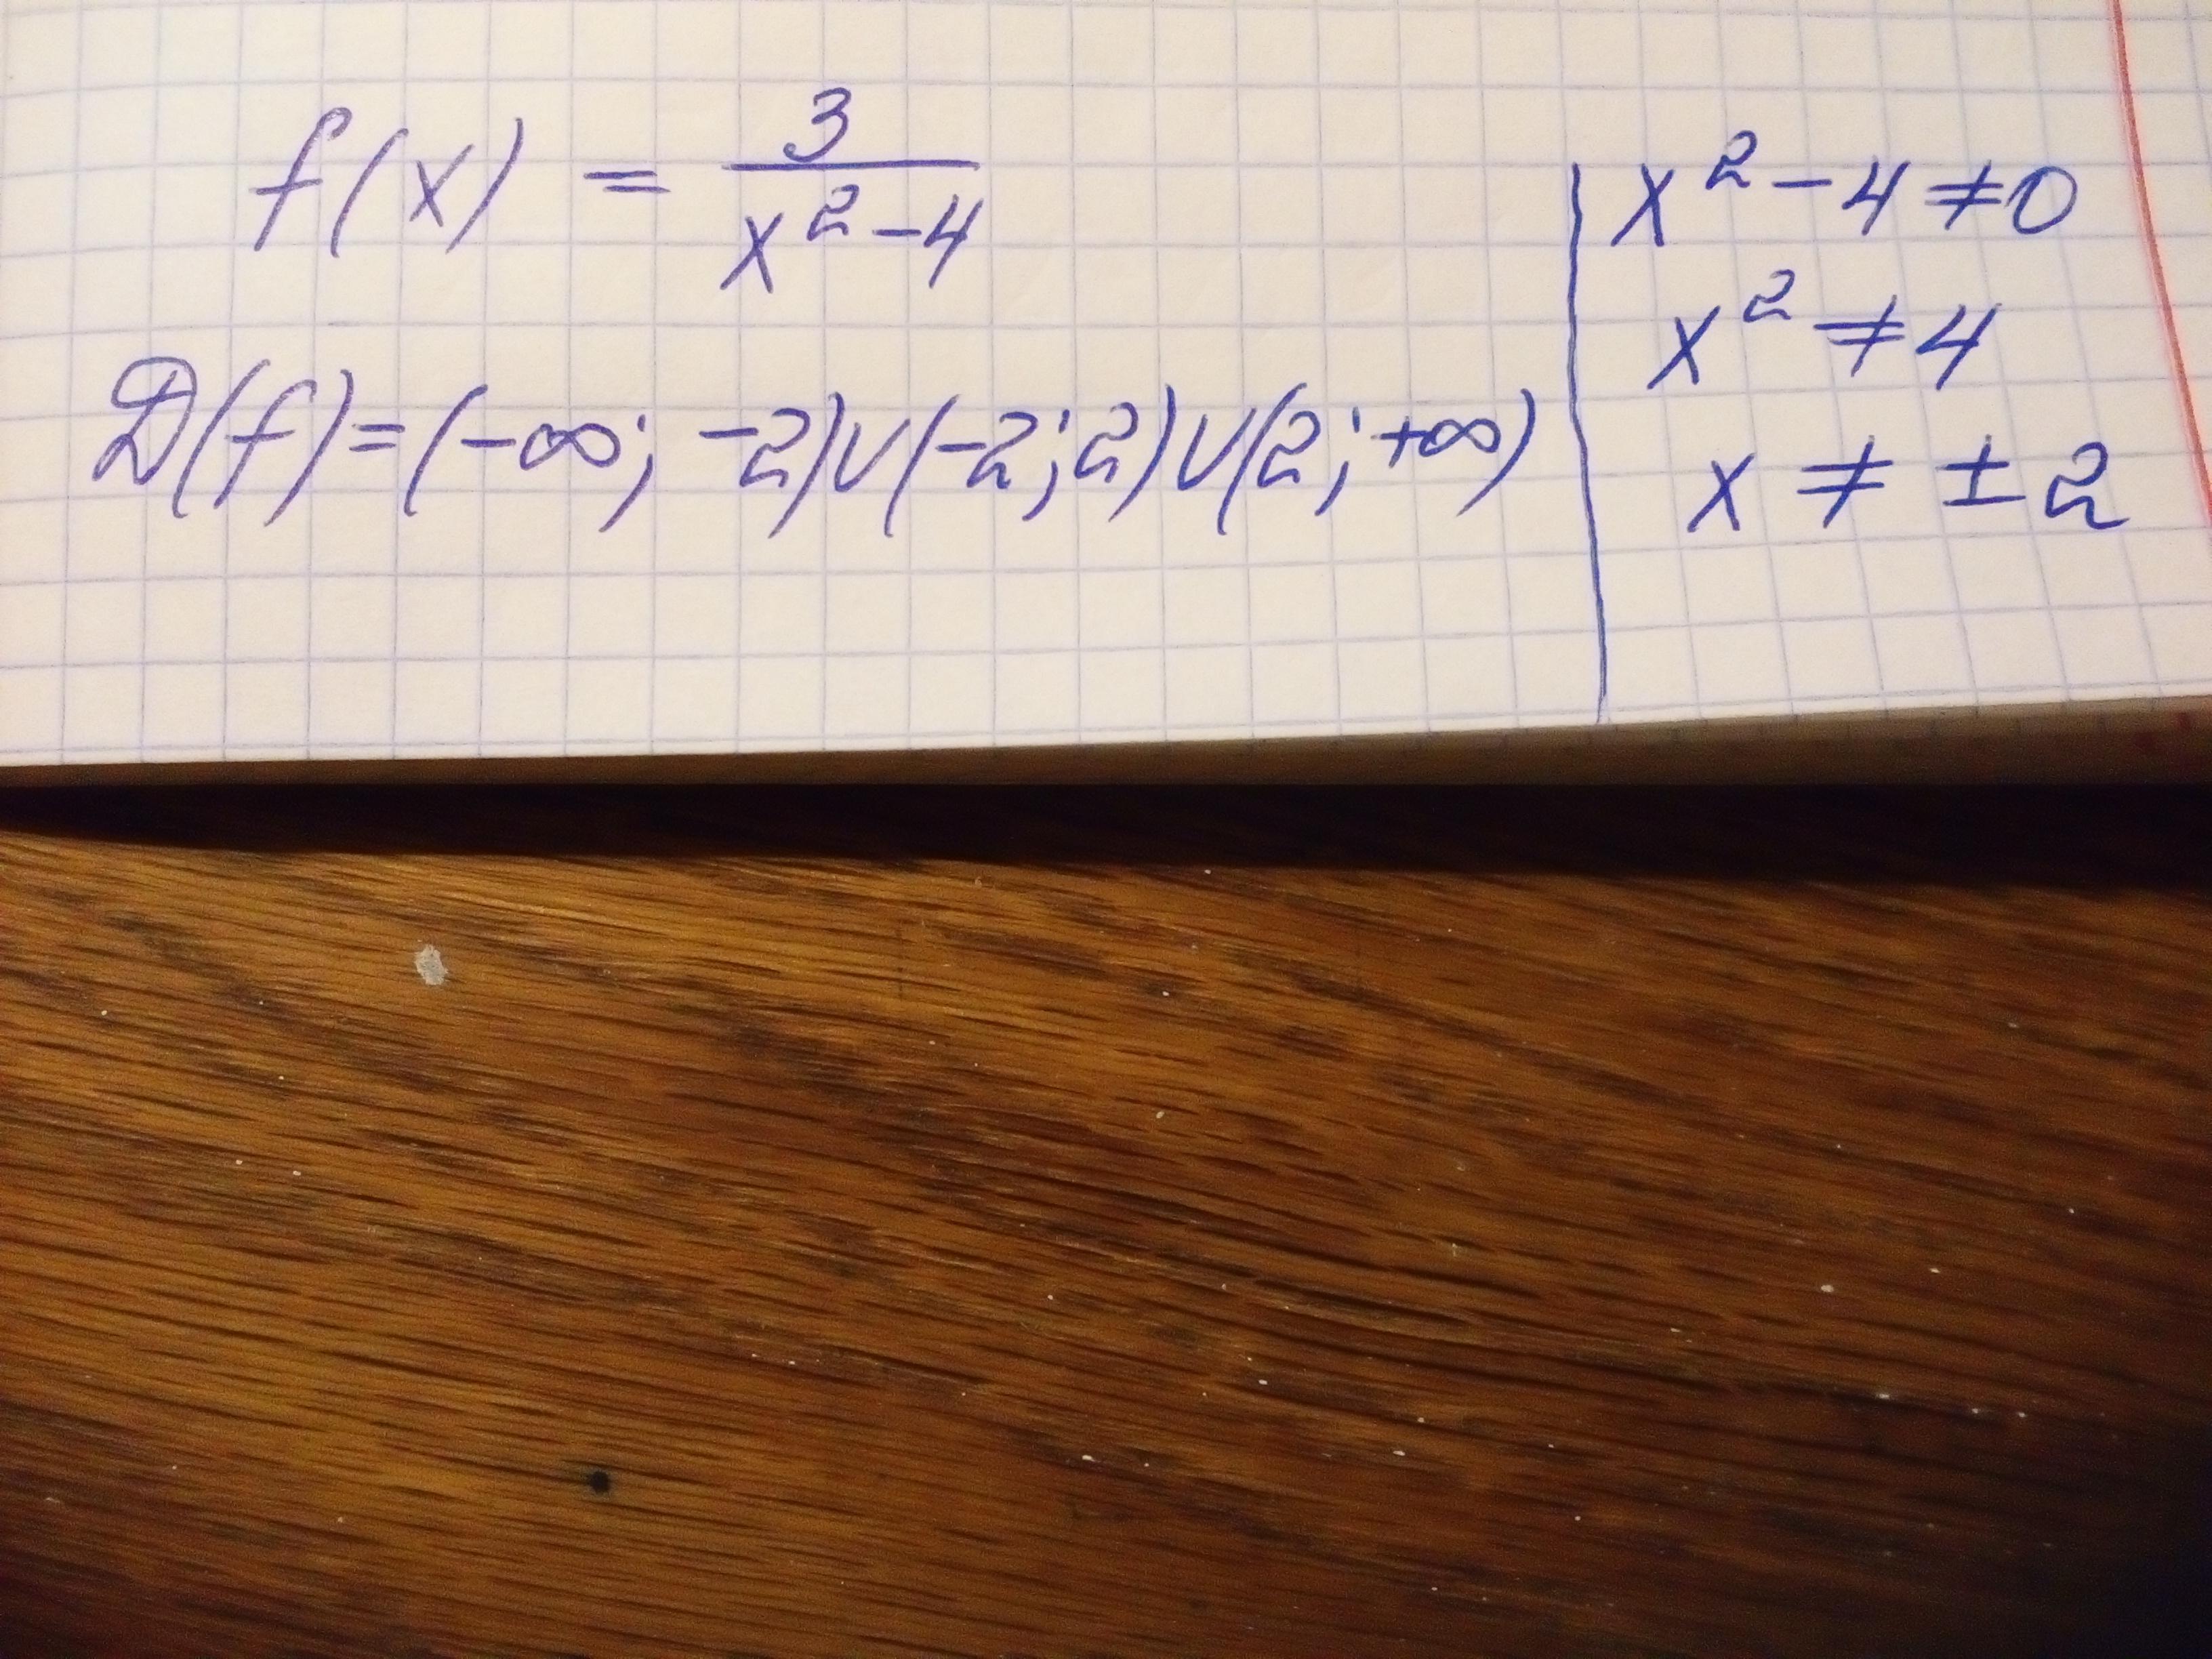 f(x) = 3/(x²-4)
D(f)=(-∞; -2)∪(-2;2)∪(2;+∞)
x²-4≠0
x²≠4
x ≠ ±2